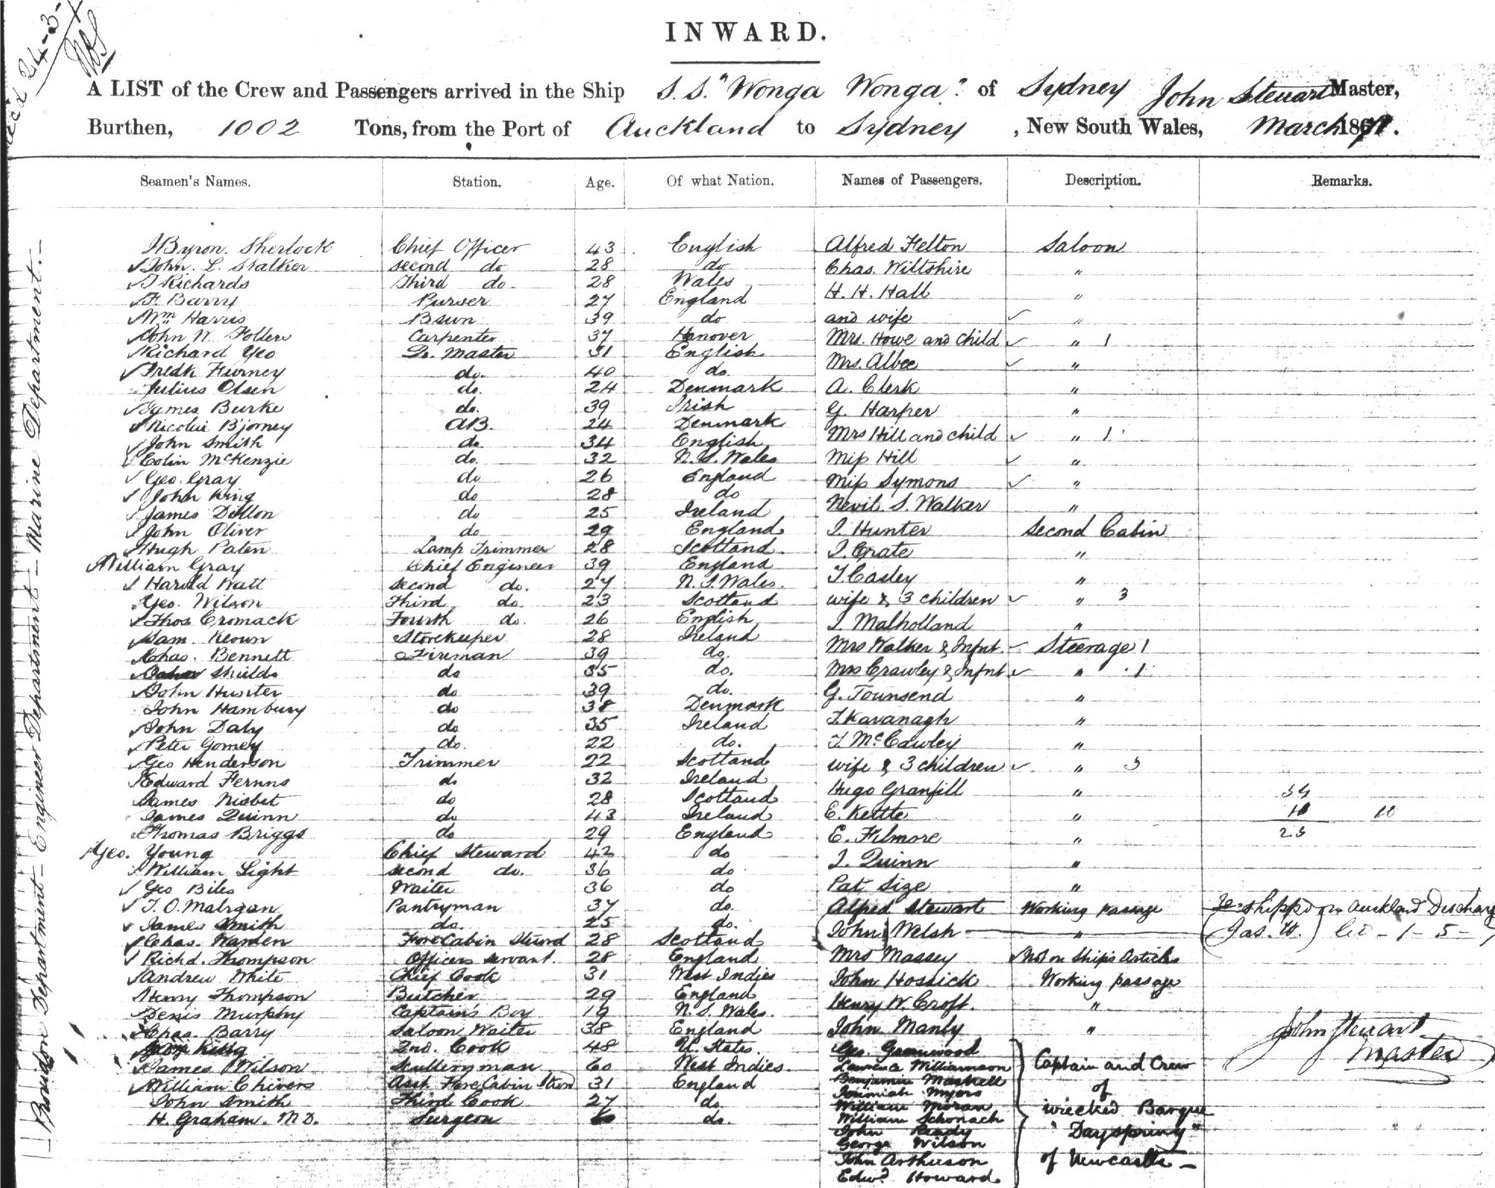 INWARD.
A LIST of the Crew and Passengers arrived in the Ship S.S. "Wonga Wonga" of Sydney John Steuart Master,
Burthen, 1002 Tons, from the Port of Auckland to Sydney, New South Wales, March 1871.
Seamen's Names. Station. Age. Of what Nation. Names of Passengers. Description. Remarks.
Byron Sherlock Chief Officer 43 English Alfred Felton Saloon
John L. Stalker second do 28 do Chas. Wiltshire "
Richards Third do. 28 Wales H. H. Hall "
F. Barry Purser 27 England and wife "
Wm Harris Bsun 39 do Mrs. Howe and child " 1
John N. Tollen Carpenter 37 Hanover Mrs. Albee "
Richard Yeo Qr. Master 31 English A. Clerk "
Fredk Furney do. 40 do. G. Harper "
Julius Olsen do. 24 Denmark Mrs Hill and child " 1
James Burke do. 39 Irish Miss Hill "
Nicolai Bjorney AB. 24 Denmark Miss Symons "
John Smith do. 34 English Nevil. S. Walker "
Colin McKenzie do. 32 N. S. Wales I. Hunter Second Cabin
Geo. Gray do 26 England I. Crate "
John King do 28 do T. Casley "
James Dillon do 25 Ireland wife & 3 children " 3
John Oliver do 29 England I. Malholland "
Hugh Paten Lamp Trimmer 28 Scotland Mrs Walker & Infnt. Steerage 1
William Gray Chief Engineer 39 England Mrs Crawley & Infnt " 1
Harold Watt second do. 27 N. S. Wales. G. Townsend "
Geo. Wilson Third do. 23 Scotland T. Kavanagh "
Thos Cromack Fourth do. 26 English T. McCawley "
Sam. Keown Storekeeper 28 Ireland wife & 3 children " 3
Chas. Bennett Fireman 39 do. Hugo Granfill "
Shields do 35 do. E. Kettle "
John Hunter do 39 do. E. Filmore "
John Hambury do 38 Denmark I. Quinn "
John Daly do 35 Ireland Pat Size "
Peter Gomey do. 22 do. Alfred Stewart Working passage shipped in Auckland Discharg
Geo Henderson Trimmer 22 Scotland John Welsh " Jas. W.
Edward Fernns do 32 Ireland Mrs Massey Not on Ship's Articles
James Nisbet do 28 Scotland John Hossick Working passage
James Quinn do 43 Ireland Henry W. Croft "
Thomas Briggs do 29 England John Manly "
Geo. Young Chief Steward 42 do Geo. Greenwood
William Light second do. 36 do Lawrence Williamson
Geo Biles Waiter 36 do Benjamin Maskell
T. O. Malrgan Pantryman 37 do. Jeremiah Myers
James Smith do. 25 do. William Moran
Chas. Warden Fore Cabin Steward 28 Scotland William Schonach
Richd. Thompson Officers servant 28 England John Ready
Andrew White Chief Cook 31 West Indies George Wilson
Henry Thompson Butcher 29 England John Arthurson
Denis Murphy Captains Boy 19 N. S. Wales. Edwd Howard
Chas. Barry Saloon Waiter 38 England
King 2nd. Cook 48 U. States
James Wilson Scullery man 60 West Indies
William Chivers Asst Fore Cabin Stew 31 England
John Smith Third Cook 27 do.
H. Graham. M.D. Surgeon do.
Captain and Crew
of
wrecked Barque
"Dayspring"
of Newcastle
10
10
John Steuart
Master
Provdon Department - Engineer Department - Marine Department